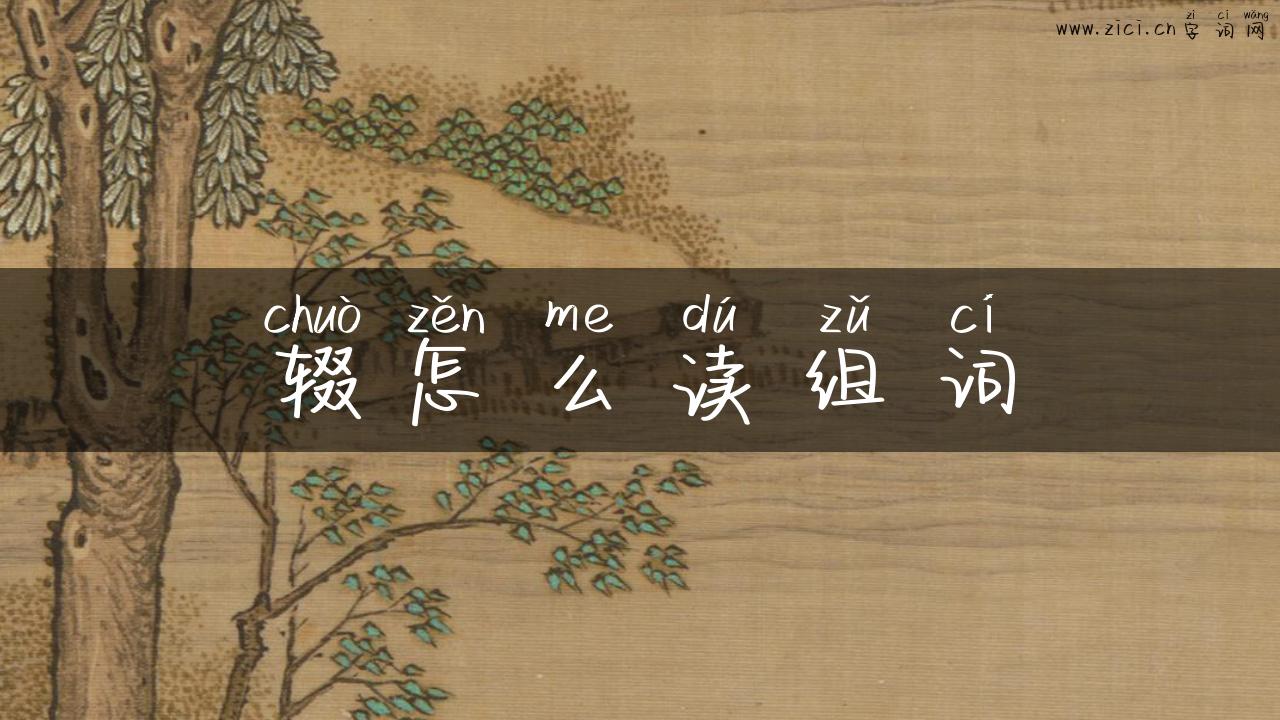 zì cí wǎng
www.zici.cn 字词网
chuò zěn me dú zǔ cí
辍怎么读组词